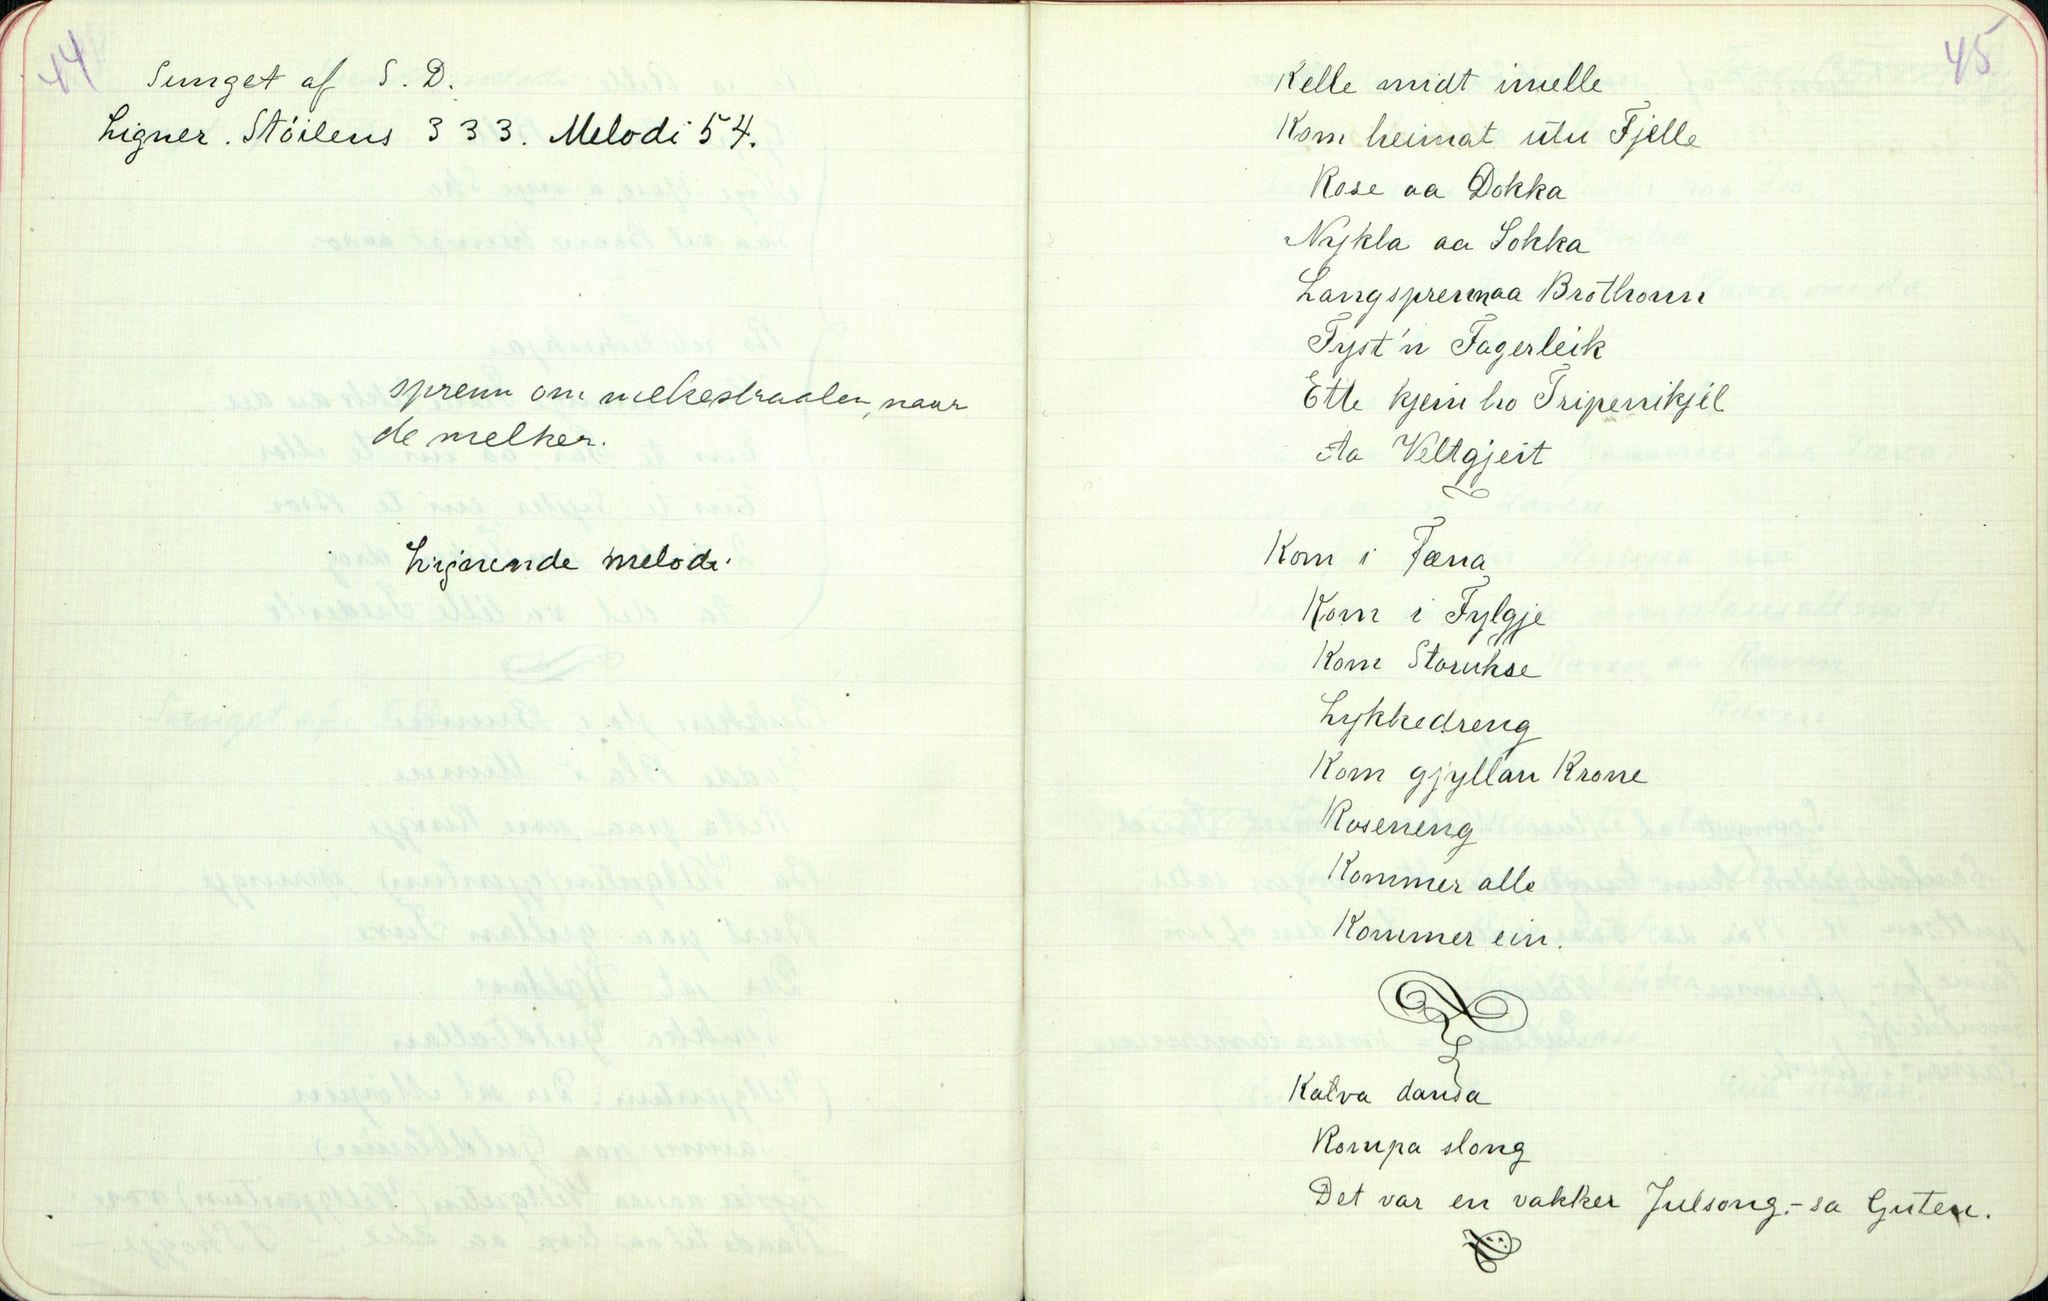 44
Sunget af S. D.
Ligner. Stöilens 333. Melodi 54.
sprenn om melkestraalen, naar
de melker.
Lignende melodi.
45
Kelle midt imelle
Kom heimat utu Fjelle
Rose aa Dokka
Nykla aa Sokka
Langsprennaa Brothonn
Tyst'n Fagerleik
Ette kjem ho Tripenikjel
Aa Veltgjeit
Kom i Tæna
Kom i Fylgje
Kom Storukse
Lykkedreng
Kom gjyllan Krone
Roseneng
Kommer alle
Kommer ein.
Katva dansa
Rompa slong
Det var en vakker Julsong.- sa Guten.